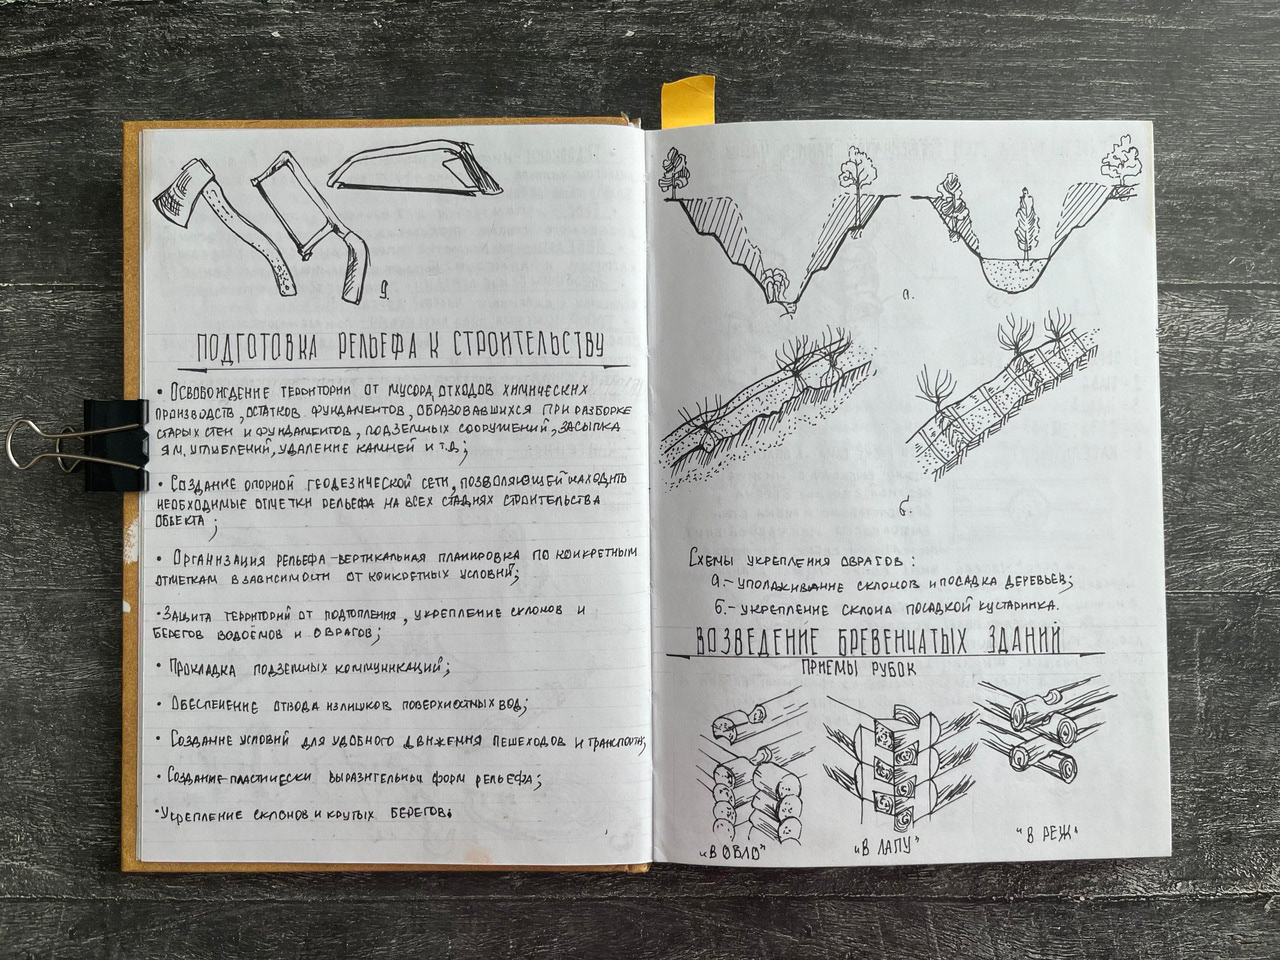 9.
ПОДГОТОВКА РЕЛЬЕФА К СТРОИТЕЛЬСТВУ
• ОСВОБОЖДЕНИЕ ТЕРРИТОРИИ ОТ МУСОРА, ОТХОДОВ ХИМИЧЕСКИХ
ПРОИЗВОДСТВ, ОСТАТКОВ ФУНДАМЕНТОВ, ОБРАЗОВАВШИХСЯ ПРИ РАЗБОРКЕ
СТАРЫХ СТЕН И ФУНДАМЕНТОВ, ПОДЗЕМНЫХ СООРУЖЕНИЙ, ЗАСЫПКА
ЯМ, УГЛУБЛЕНИЙ, УДАЛЕНИЕ КАМНЕЙ И Т.Д.;
• СОЗДАНИЕ ОПОРНОЙ ГЕОДЕЗИЧЕСКОЙ СЕТИ, ПОЗВОЛЯЮЩЕЙ НАХОДИТЬ
НЕОБХОДИМЫЕ ОТМЕТКИ РЕЛЬЕФА НА ВСЕХ СТАДИЯХ СТРОИТЕЛЬСТВА
ОБЪЕКТА;
• ОРГАНИЗАЦИЯ РЕЛЬЕФА-ВЕРТИКАЛЬНАЯ ПЛАНИРОВКА ПО КОНКРЕТНЫМ
ОТМЕТКАМ В ЗАВИСИМОСТИ ОТ КОНКРЕТНЫХ УСЛОВИЙ;
• ЗАЩИТА ТЕРРИТОРИЙ ОТ ПОДТОПЛЕНИЯ, УКРЕПЛЕНИЕ СКЛОНОВ И
БЕРЕГОВ ВОДОЁМОВ И ОВРАГОВ;
• ПРОКЛАДКА ПОДЗЕМНЫХ КОММУНИКАЦИЙ;
• ОБЕСПЕЧЕНИЕ ОТВОДА ИЗЛИШКОВ ПОВЕРХНОСТНЫХ ВОД;
• СОЗДАНИЕ УСЛОВИЙ ДЛЯ УДОБНОГО ДВИЖЕНИЯ ПЕШЕХОДОВ И ТРАНСПОРТА;
• СОЗДАНИЕ ПЛАСТИЧЕСКИ ВЫРАЗИТЕЛЬНЫХ ФОРМ РЕЛЬЕФА;
• УКРЕПЛЕНИЕ СКЛОНОВ И КРУТЫХ БЕРЕГОВ.
а.
б.
СХЕМЫ УКРЕПЛЕНИЯ ОВРАГОВ:
а.- УПОЛАЖИВАНИЕ СКЛОНОВ И ПОСАДКА ДЕРЕВЬЕВ;
б.- УКРЕПЛЕНИЕ СКЛОНА ПОСАДКОЙ КУСТАРНИКА.
ВОЗВЕДЕНИЕ БРЕВЕНЧАТЫХ ЗДАНИЙ
ПРИЕМЫ РУБОК
"В ОБЛО" "В ЛАПУ" "В РЕЖ"